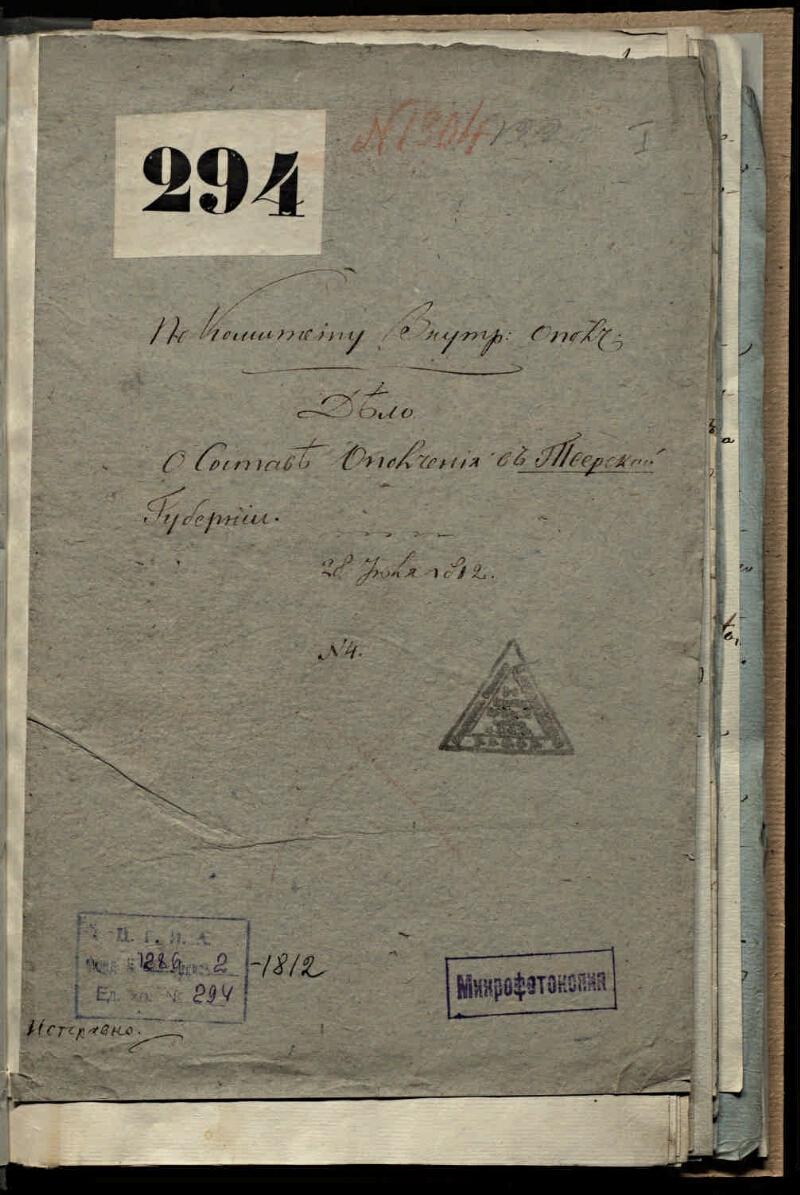 294
N1304
I
По Комитету Внутр: ополч:
Дѣло
О Составѣ Ополченія въ Тверской
Губерніи.
28 Іюля 1812.
N4.
Ц. Г. И. А.
Фонд № 1286 Опись 2 -1812
Ед. хр. № 294
Микрофотокопия